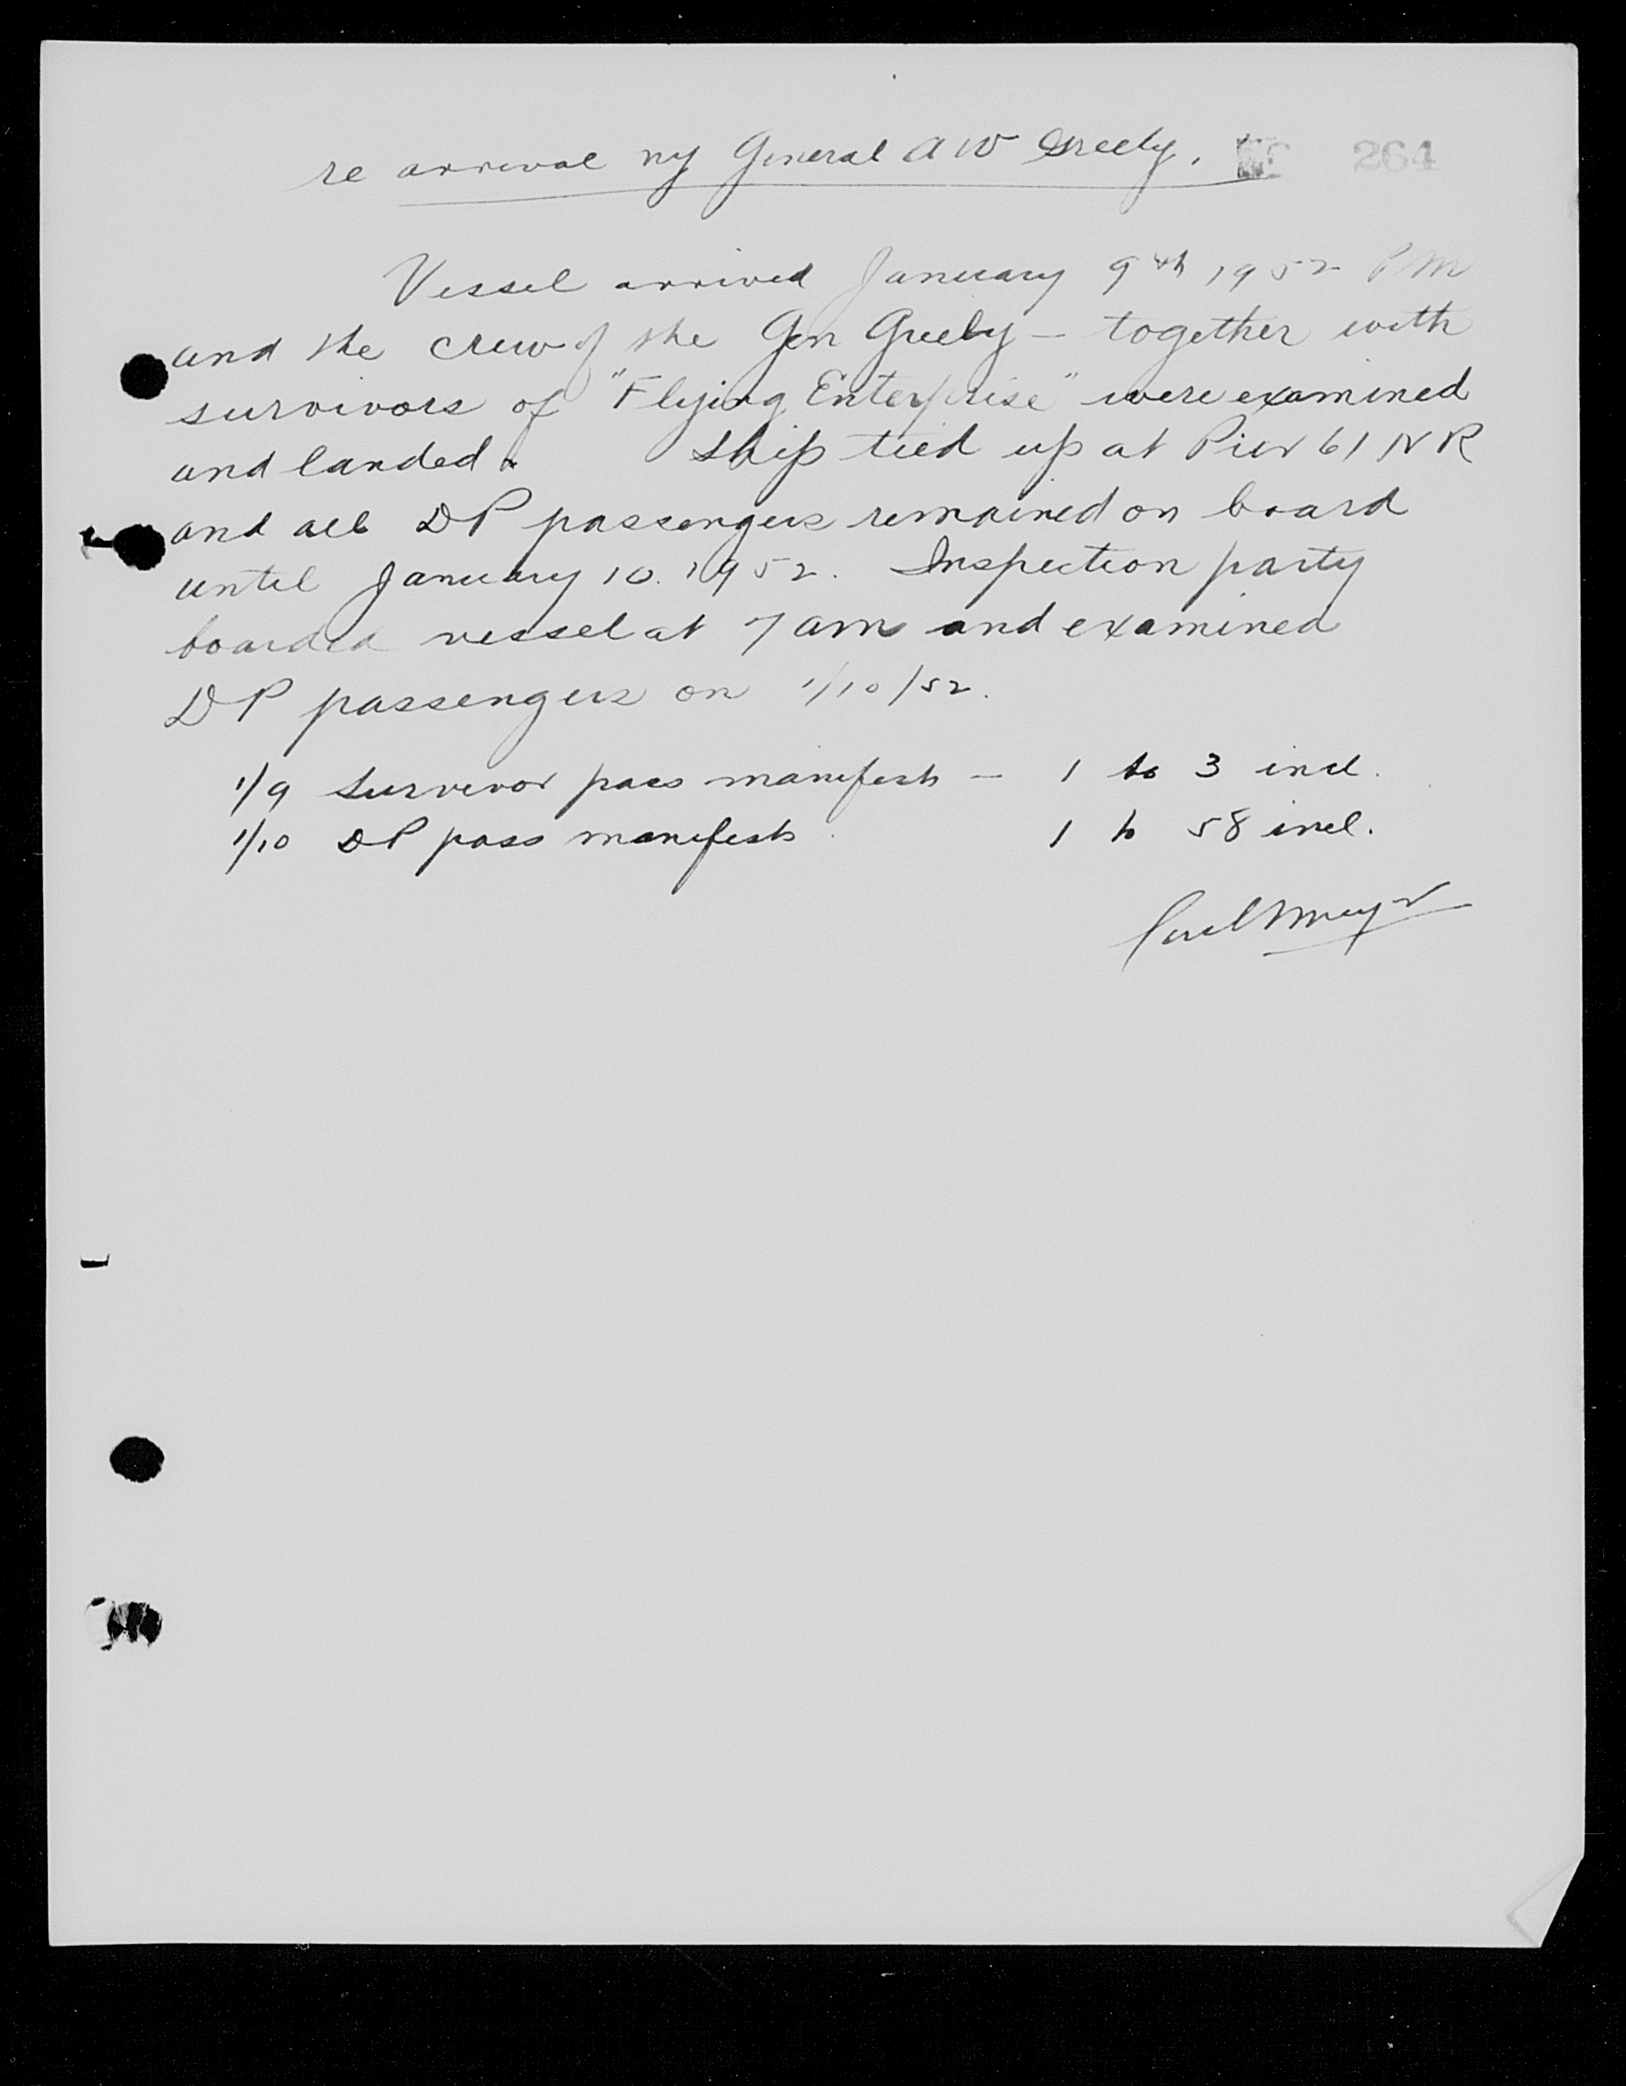 re arrival ny General A W Greely. 264
Vessel arrived January 9th 1952 PM
and the crew of the Gen Greely - together with
survivors of "Flying Enterprise" were examined
and landed. Ship tied up at Pier 61 N R
and all DP passengers remained on board
until January 10. 1952. Inspection party
boarded vessel at 7 am and examined
DP passengers on 1/10/52.
1/9 Survivor pass manifests - 1 to 3 incl.
1/10 DP pass manifests 1 to 58 incl.